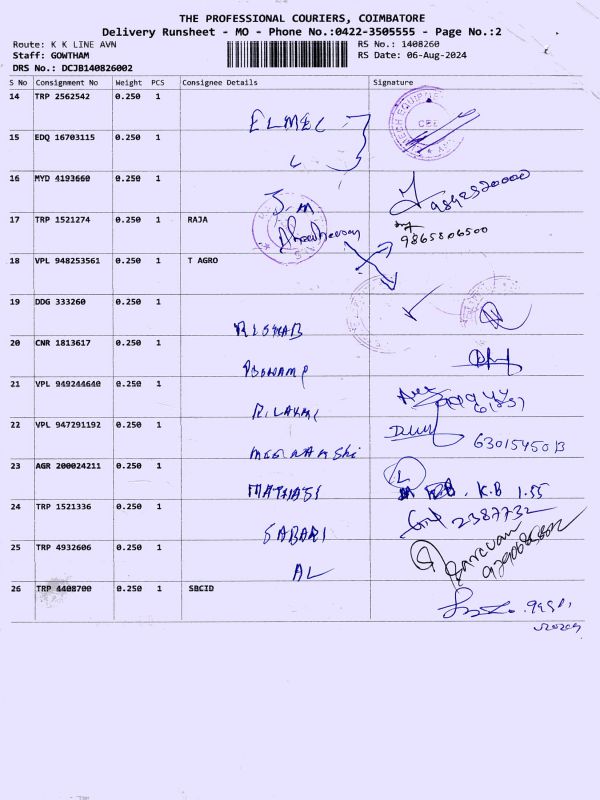 THE PROFESSIONAL COURIERS, COIMBATORE
Delivery Runsheet - MO - Phone No.:0422-3505555 - Page No.:2
Route: K K LINE AVN
RS No.: 1408260
Staff: GOWTHAM
RS Date: 06-Aug-2024
DRS No.: DCJB140826002
S No Consignment No Weight PCS Consignee Details Signature
14 TRP 2562542 0.250 1
ELMEC
15 EDQ 16703115 0.250 1
16 MYD 4193660 0.250 1
S.M
9842320000
17 TRP 1521274 0.250 1 RAJA
9865806500
18 VPL 948253561 0.250 1 T AGRO
19 DDG 333260 0.250 1
RISHAB
20 CNR 1813617 0.250 1
21 VPL 949244640 0.250 1
R. LAXMI
22 VPL 947291192 0.250 1
MEENAKShi
23 AGR 200024211 0.250 1
MATHAJI
K.B 1.55
24 TRP 1521336 0.250 1
2387732
SABARI
25 TRP 4932606 0.250 1
AL
26 TRP 4408700 0.250 1 SBCID